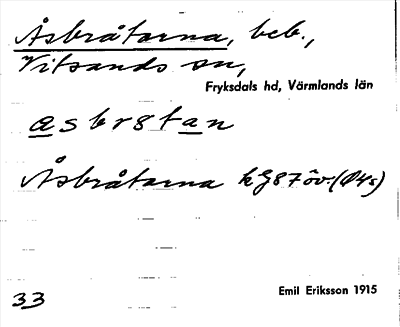 Åsbråtarna, beb.,
Vitsands sn,
Fryksdals hd, Värmlands län
Åsbråtarna kG87öv.(Ø4s)
Emil Eriksson 1915
33